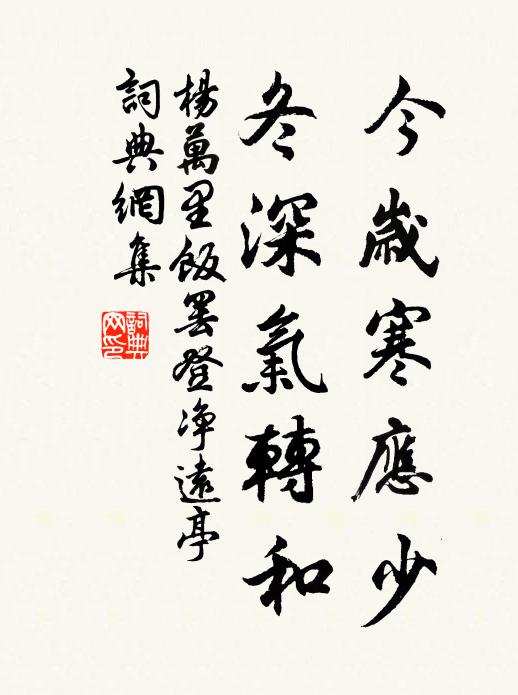 今歲寒應少
冬深氣轉和
楊萬里飯罷登净遠亭
詞典網集
詞典網印